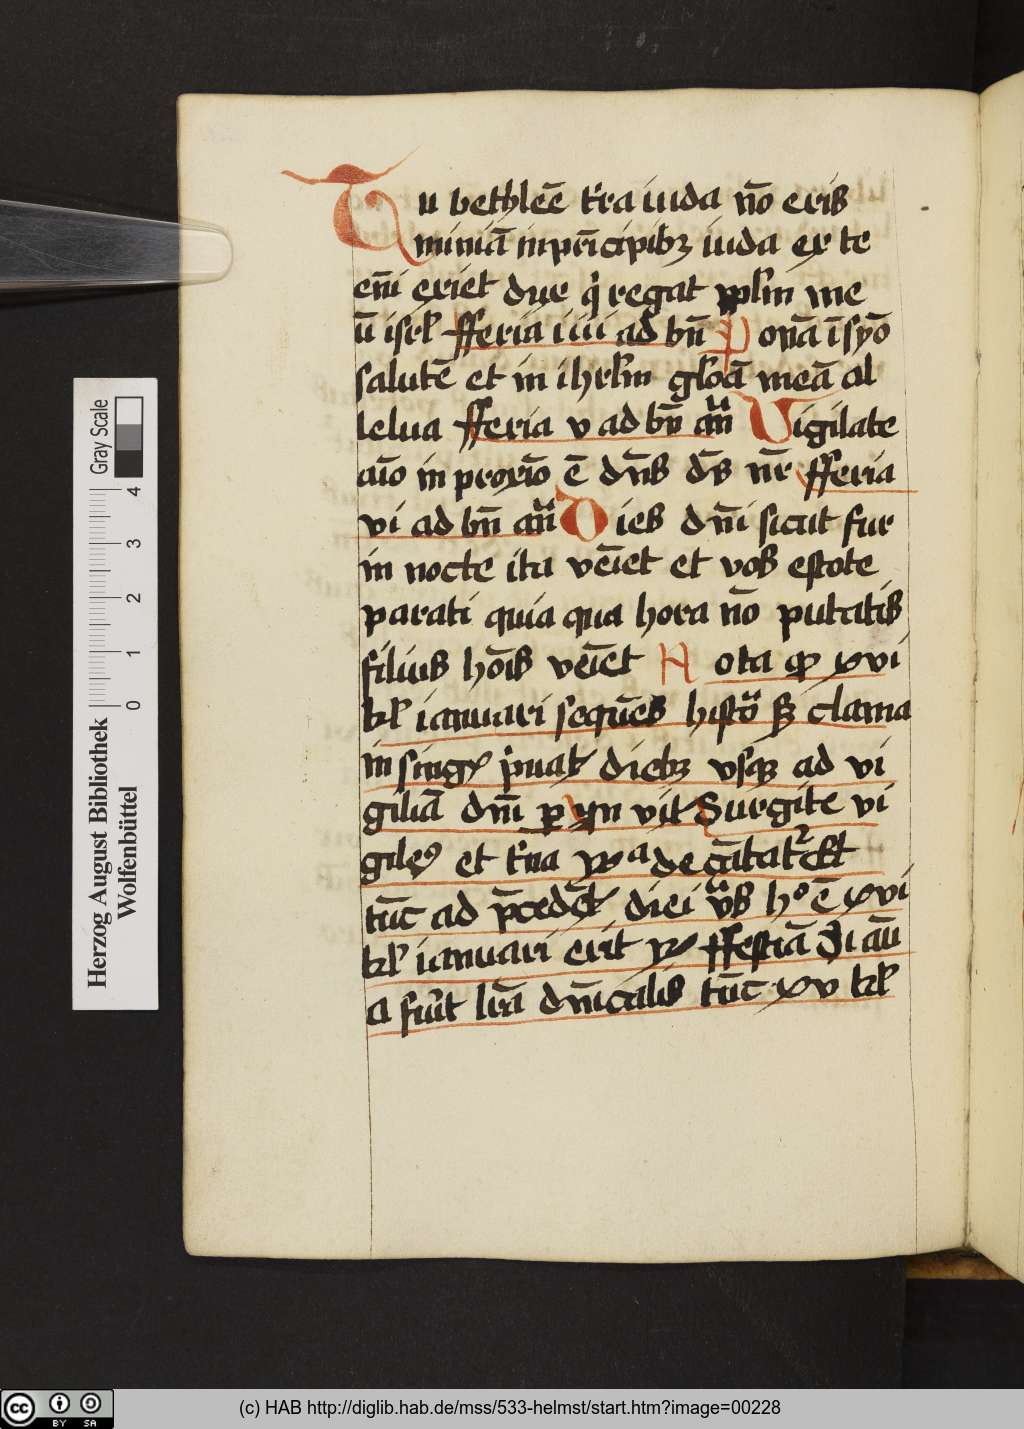 Tu bethleē t'ra iuda nō eris
minīa in pn̄cipibꝫ iuda ex te
en̄i exiet dux q̇ regat pplm me
ū isrl fferia iiii ad bn̄ Ponā ī syō
salutē et in ihrlm glōa meā al
lelua fferia v ad bn̄ an̄ Uigilate
aīo in proxīo ē dn̄s ds̄ nr̄ fferia
vi ad bn̄ an̄ Dies dn̄i sicut fur
in nocte ita vēiet et vos estote
parati quia qua hora nō putatis
filius hōis vēiet Nota ꝙ xvi
kl ianuari sequēs histō ß clama
in singl' p̍uat' diebꝫ vsqꝫ ad vi
giliā dn̄i p' yn vit Surgite vi
giles et t'na ꝟa de cātat' Et
tūc ad p̄cedēt' diei vs̄ ho ē xvi
kl ianuari erit ꝟ ffestīa Si aū
a fūt lrā dn̄icalis tūc xv kl
Herzog August Bibliothek
Wolfenbüttel
Gray Scale
0 1 2 3 4
cc BY SA
(c) HAB http://diglib.hab.de/mss/533-helmst/start.htm?image=00228